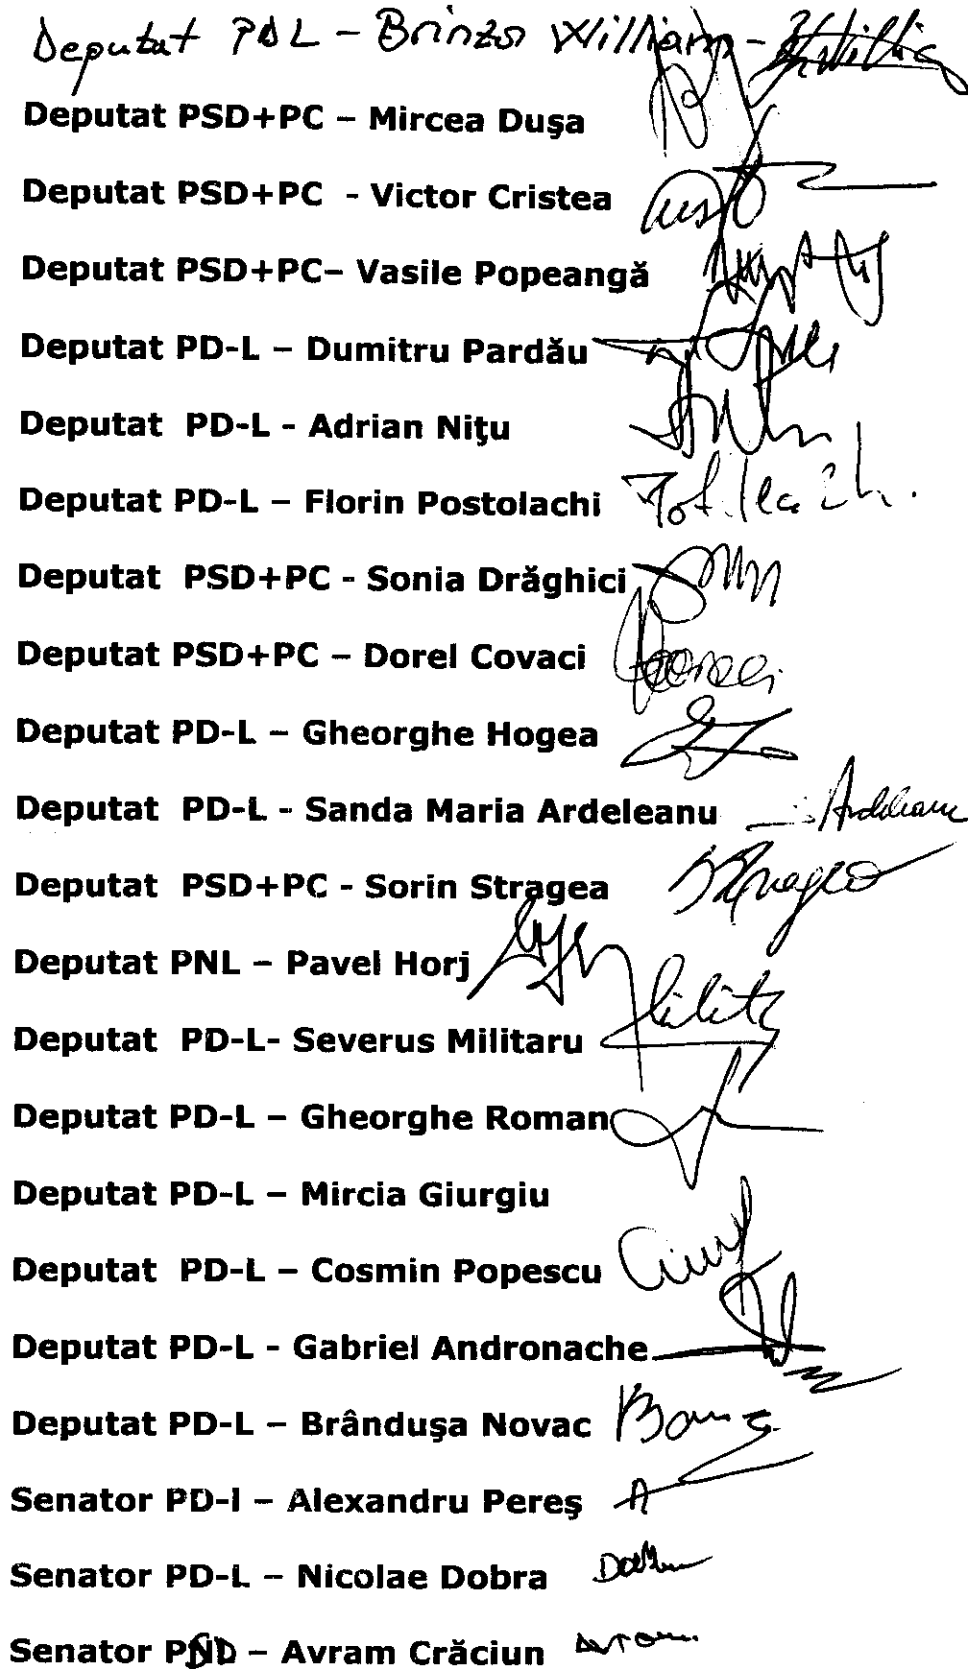 Deputat PDL - Brinza William -
Deputat PSD+PC – Mircea Duşa
Deputat PSD+PC - Victor Cristea
Deputat PSD+PC– Vasile Popeangă
Deputat PD-L – Dumitru Pardău
Deputat PD-L - Adrian Niţu
Deputat PD-L – Florin Postolachi
Deputat PSD+PC - Sonia Drăghici
Deputat PSD+PC – Dorel Covaci
Deputat PD-L – Gheorghe Hogea
Deputat PD-L - Sanda Maria Ardeleanu Ardeleanu
Deputat PSD+PC - Sorin Stragea
Deputat PNL – Pavel Horj
Deputat PD-L- Severus Militaru
Deputat PD-L – Gheorghe Roman
Deputat PD-L – Mircia Giurgiu
Deputat PD-L – Cosmin Popescu
Deputat PD-L - Gabriel Andronache
Deputat PD-L – Brânduşa Novac
Senator PD-l – Alexandru Pereş
Senator PD-L – Nicolae Dobra
Senator PSD – Avram Crăciun